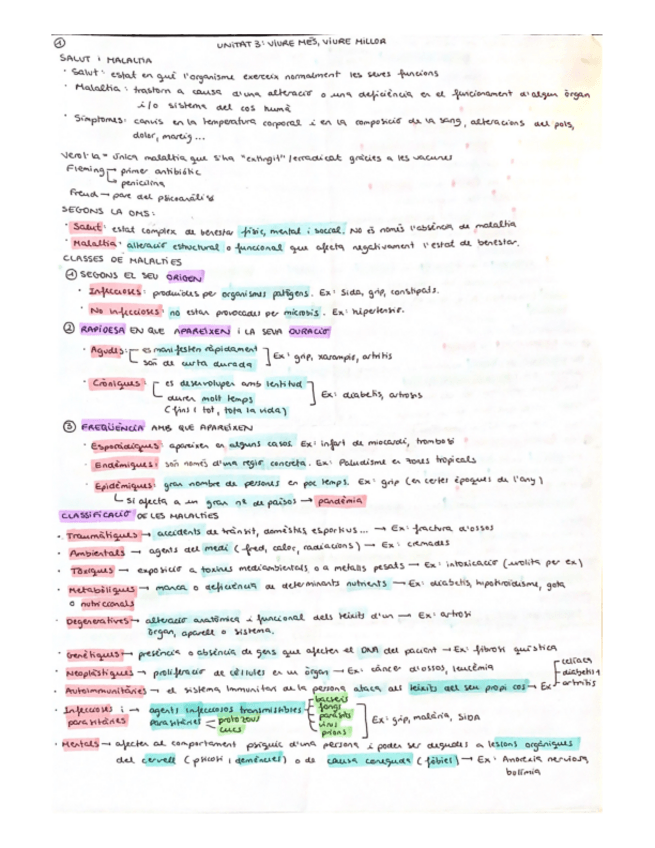 1
UNITAT 3: VIURE MÉS, VIURE MILLOR
SALUT i MALALTIA
· Salut: estat en què l'organisme exerceix normalment les seves funcions
· Malaltia: trastorn a causa d'una alteració o una deficiència en el funcionament d'algun òrgan
i/o sistema del cos humà
· Símptomes: canvis en la temperatura corporal i en la composició de la sang, alteracions del pols,
dolor, mareig...
Verola = única malaltia que s'ha "extingit"/erradicat gràcies a les vacunes
Fleming → primer antibiòtic
→ penicilina
Freud → pare del psicoanàlisi
SEGONS LA OMS:
· Salut: estat complex de benestar físic, mental i social. No és només l'absència de malaltia
· Malaltia: alteració estructural o funcional que afecta negativament l'estat de benestar.
CLASSES DE MALALTIES
1 SEGONS EL SEU ORIGEN
· Infeccioses: produïdes per organismes patògens. Ex: Sida, grip, constipats.
· No infeccioses: no estan provocades per microbis. Ex: hipertensió.
2 RAPIDESA EN QUE APAREIXEN i LA SEVA DURACIÓ
· Agudes: es manifesten ràpidament
són de curta durada
Ex: grip, xarampió, artritis
· Cròniques: es desenvolupen amb lentitud
duren molt temps
(fins i tot, tota la vida)
Ex: diabetis, artrosis
3 FREQÜÈNCIA AMB QUE APAREIXEN
· Esporàdiques: apareixen en alguns casos. Ex: infart de miocardi, trombosi
· Endèmiques: són només d'una regió concreta. Ex: Paludisme en zones tropicals
· Epidèmiques: gran nombre de persones en poc temps. Ex: grip (en certes èpoques de l'any)
Si afecta a un gran nº de països → pandèmia
CLASSIFICACIÓ DE LES MALALTIES
· Traumàtiques → accidents de trànsit, domèstics, esportius... → Ex: fractura d'ossos
· Ambientals → agents del medi (fred, calor, radiacions) → Ex: cremades
· Tòxiques → exposició a toxines mediambientals o a metalls pesats → Ex: intoxicació (ex)
· Metabòliques → manca o deficiència de determinants nutrients → Ex: diabetis, hipotiroïdisme, gota
o nutricionals
· Degeneratives → alteració anatòmica i funcional dels teixits d'un → Ex: artrosi
òrgan, aparell o sistema.
· Genètiques → presència o absència de gens que afecten el DNA del pacient → Ex: fibrosi quística
· Neoplàstiques → proliferació de cèl·lules en un òrgan → Ex: càncer d'ossos, leucèmia
· Autoimmunitàries → el sistema immunitari de la persona ataca als teixits del seu propi cos → Ex
celíacs
diabetis 1
artritis
· Infeccioses i → agents infecciosos transmissibles
parasitàries
parasitàries
protozous
cucs
bacteris
fongs
paràsits
virus
prions
Ex: grip, malària, SIDA
· Mentals → afecten al comportament psíquic d'una persona i poden ser degudes a lesions orgàniques
del cervell (psicosi i demències) o de causa coneguda (fòbies) → Ex: Anorèxia nerviosa,
bulímia